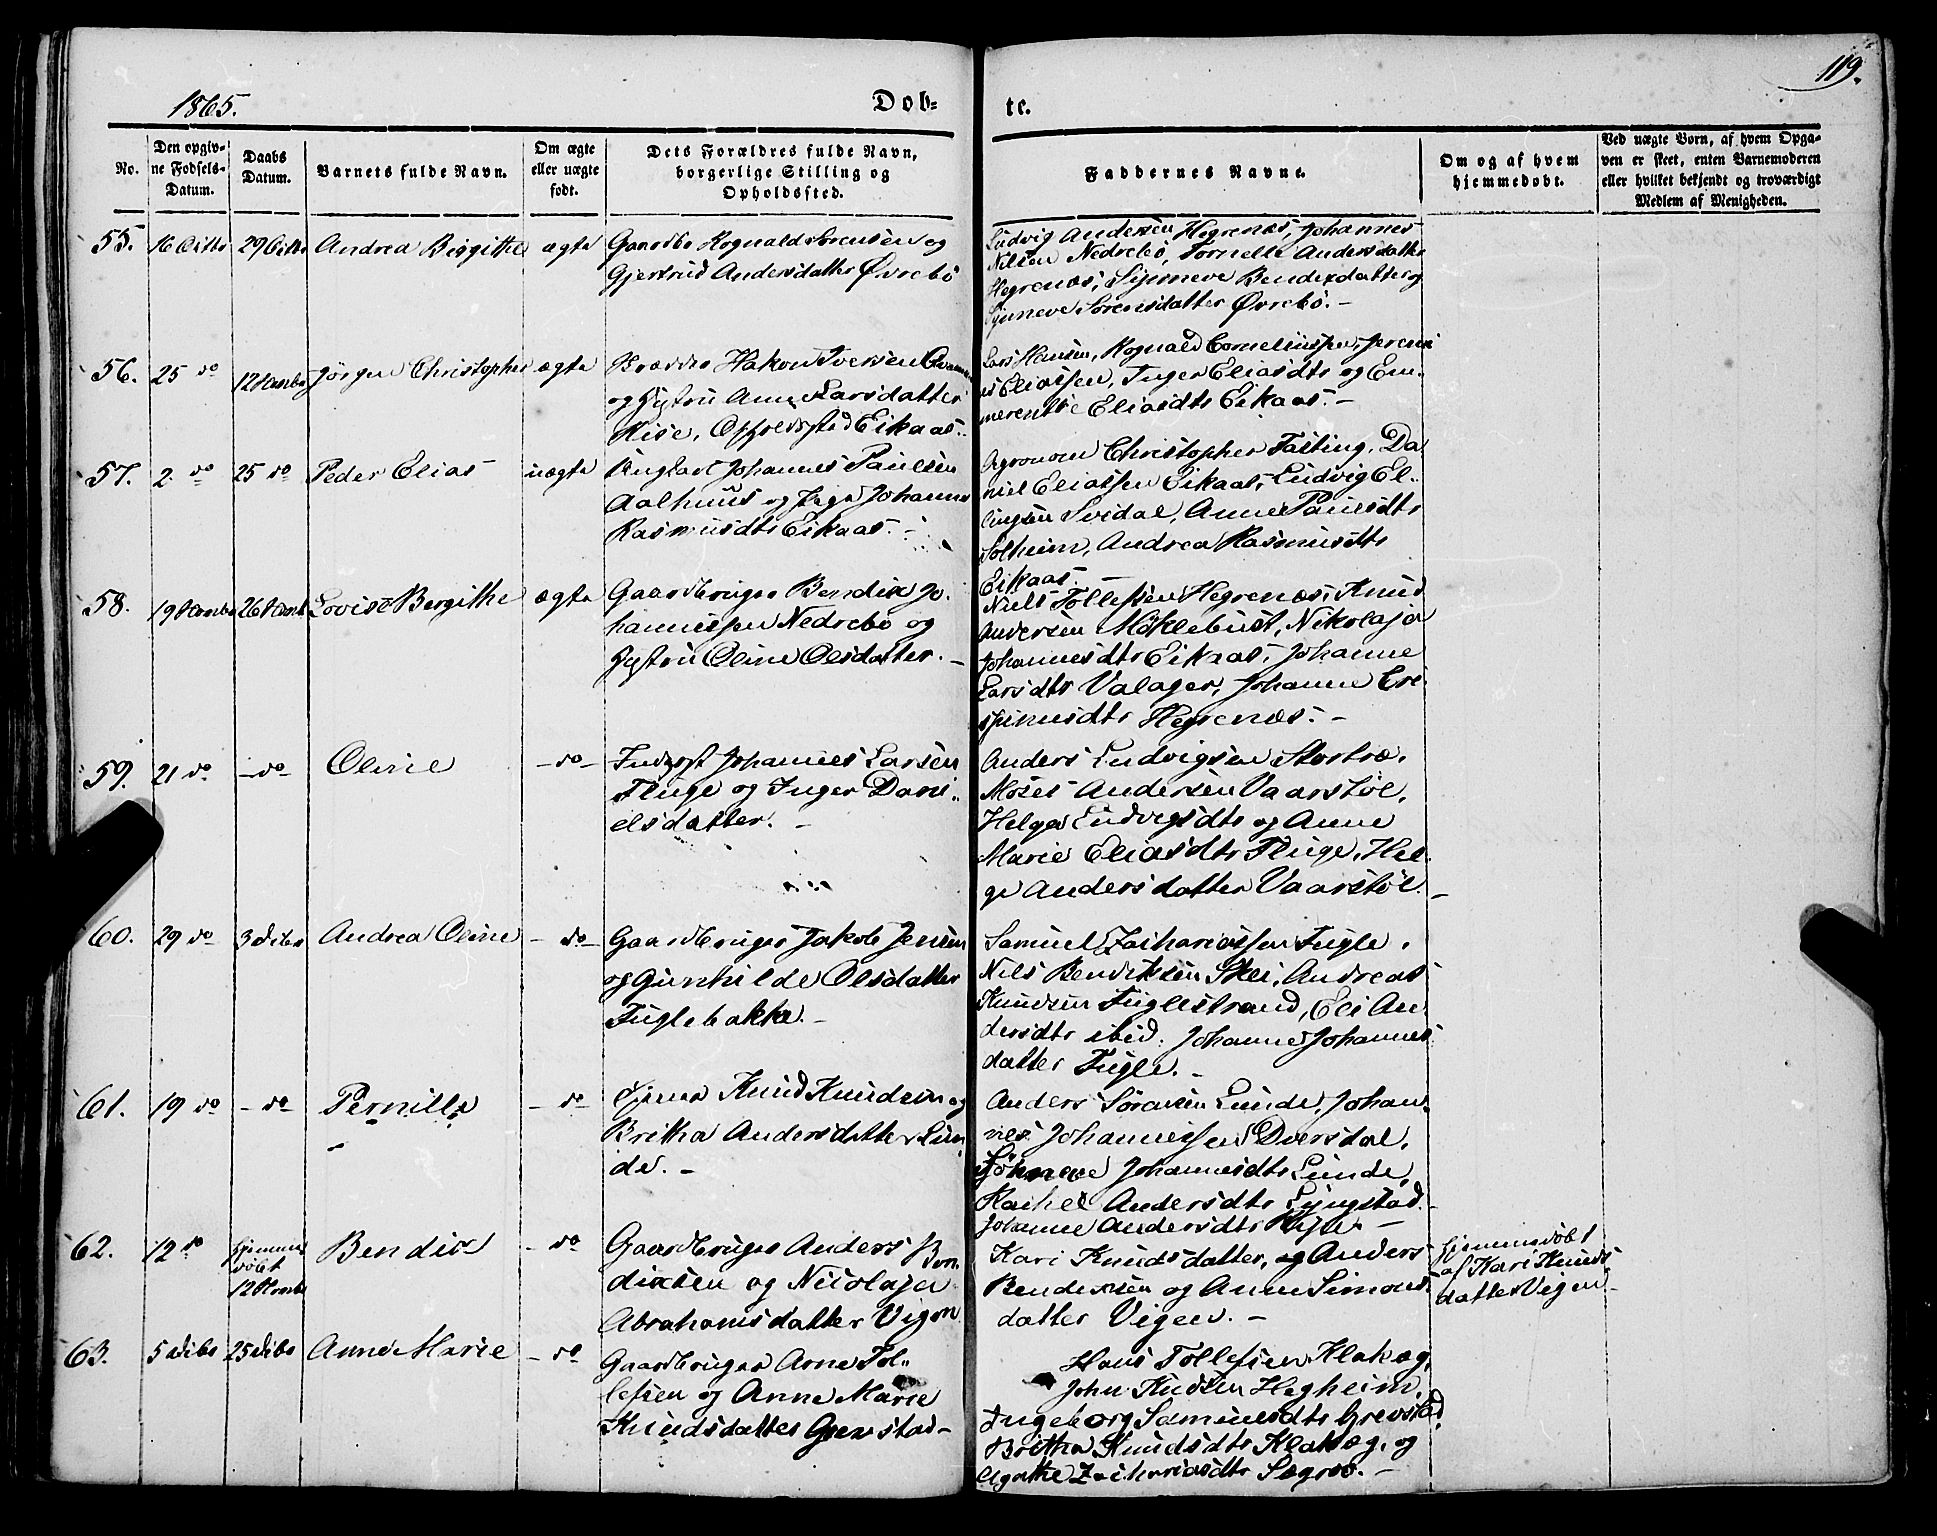 1865.
Dob-
te.
119.
No.
Den opgiv-
ne Fødsels-
Datum.
Daabs
Datum.
Barnets fulde Navn.
Om ægte
eller uægte
født.
Dets Forældres fulde Navn,
borgerlige Stilling og
Opholdssted.
Faddernes Navne.
Om og af hvem
hjemmedøbt.
Ved uægte Børn, af hvem Opga-
ven er skeet, enten Barnemoderen
eller hvilket bekjendt og troværdigt
Medlem af Menigheden.
55. 16 Octbr 29 Octbr Andrea Birgithe ægte
Gaardbr Rognald Sørensen og
Gjertrud Andersdatter Øvrebö
Ludvig Andersen Hegrenæs, Johannes
Nilsen Nedrebö, Tornelle Andersdatter
Hegrenæs, Synneve Bendixdatter og
Synneve Sørensdatter Øvrebö.-
56. 25 do Jørgen Christopher ægte
Hakon Iversen
og Anne Larsdatter
Eikaas.
Lars Hansen, Rognald Corneliussen, Jeremi
as Eliassen, Inger Eliasdtr og Em-
merentse Eliasdtr Eikaas.-
57. 2 do 25 do Peder Elias uægte
Ungkarl Johannes Paulsen
Aalhuus og Pige Johanne
Rasmusdtr Eikaas.-
Agronom Christopher Fasting, Da
niel Eliassen Eikaas, Ludvig El-
lingsen Svidal, Anne Paulsdtr
Solheim, Andrea Rasmusdtr
Eikaas.
58. 19 Novbr 26 Novbr Lovise Bergithe ægte
Gaardbruger Bendix Jo-
hannessen Nedrebö og
Hustru Oline Olsdatter.-
Niels Tollefsen Hegrenæs, Knud
Andersen Møklebust, Nikolaja
Johannesdtr Eikaas, Johanne
Larsdtr Valager, Johanne Cre
spinusdtr Hegrenæs.-
59. 21 do -do- Oline -do-
Inderst Johannes Larsen
Fluge og Inger Dani-
elsdatter.-
Anders Ludvigsen Stortræ,
Moses Andersen Vaarstöl,
Helga Ludvigsdtr og Anne
Marie Eliasdtr Fluge, Hel-
ge Andersdatter Vaarstöl.-
60. 29 do 3 Decbr Andrea Oline -do-
Gaardbruger Jakob Jensen
og Gunhilde Olsdatter
Fuglebakke.-
Samuel Zachariassen Fugle,
Nils Bendiksen Skei, Andreas
Knudsen Fuglestrand, Eli An-
dersdtr ibid. Johanne Johannes
datter Fugle.-
61. 19 do -do- Pernille -do-
Knud Knudsen og
Britha Andersdatter Lun
de.-
Anders Sörensen Lunde, Johan-
nes Johannessen Dversdal,
Johannesdtr Lunde,
Rachel Andersdtr Lyngstad
Johanne Andersdtr
62. 12 do Hjemme
döbt
12 Novbr
Bendix -do-
Gaardbruger Anders Ben
dixsen og Nicolaja
Abrahamsdatter Vigen
Kari Knudsdatter, og Anders
Bendixsen og Anne Simons-
datter Vigen.-
Hjemmedöbt
af Kari Knuds
datter Vigen.-
63. 5 Decbr 25 Decbr Anne Marie -do-
Gaardbruger Arne Tol-
lefsen og Anne Marie
Knudsdatter Grevstad-
Hans Tollefsen Klakeg,
John Knudsen Hegheim,
Ingeborg Samuelsdtr Grevstad,
Britha Knudsdtr Klakeg, og
Agathe Zachariasdtr Sægrov.-